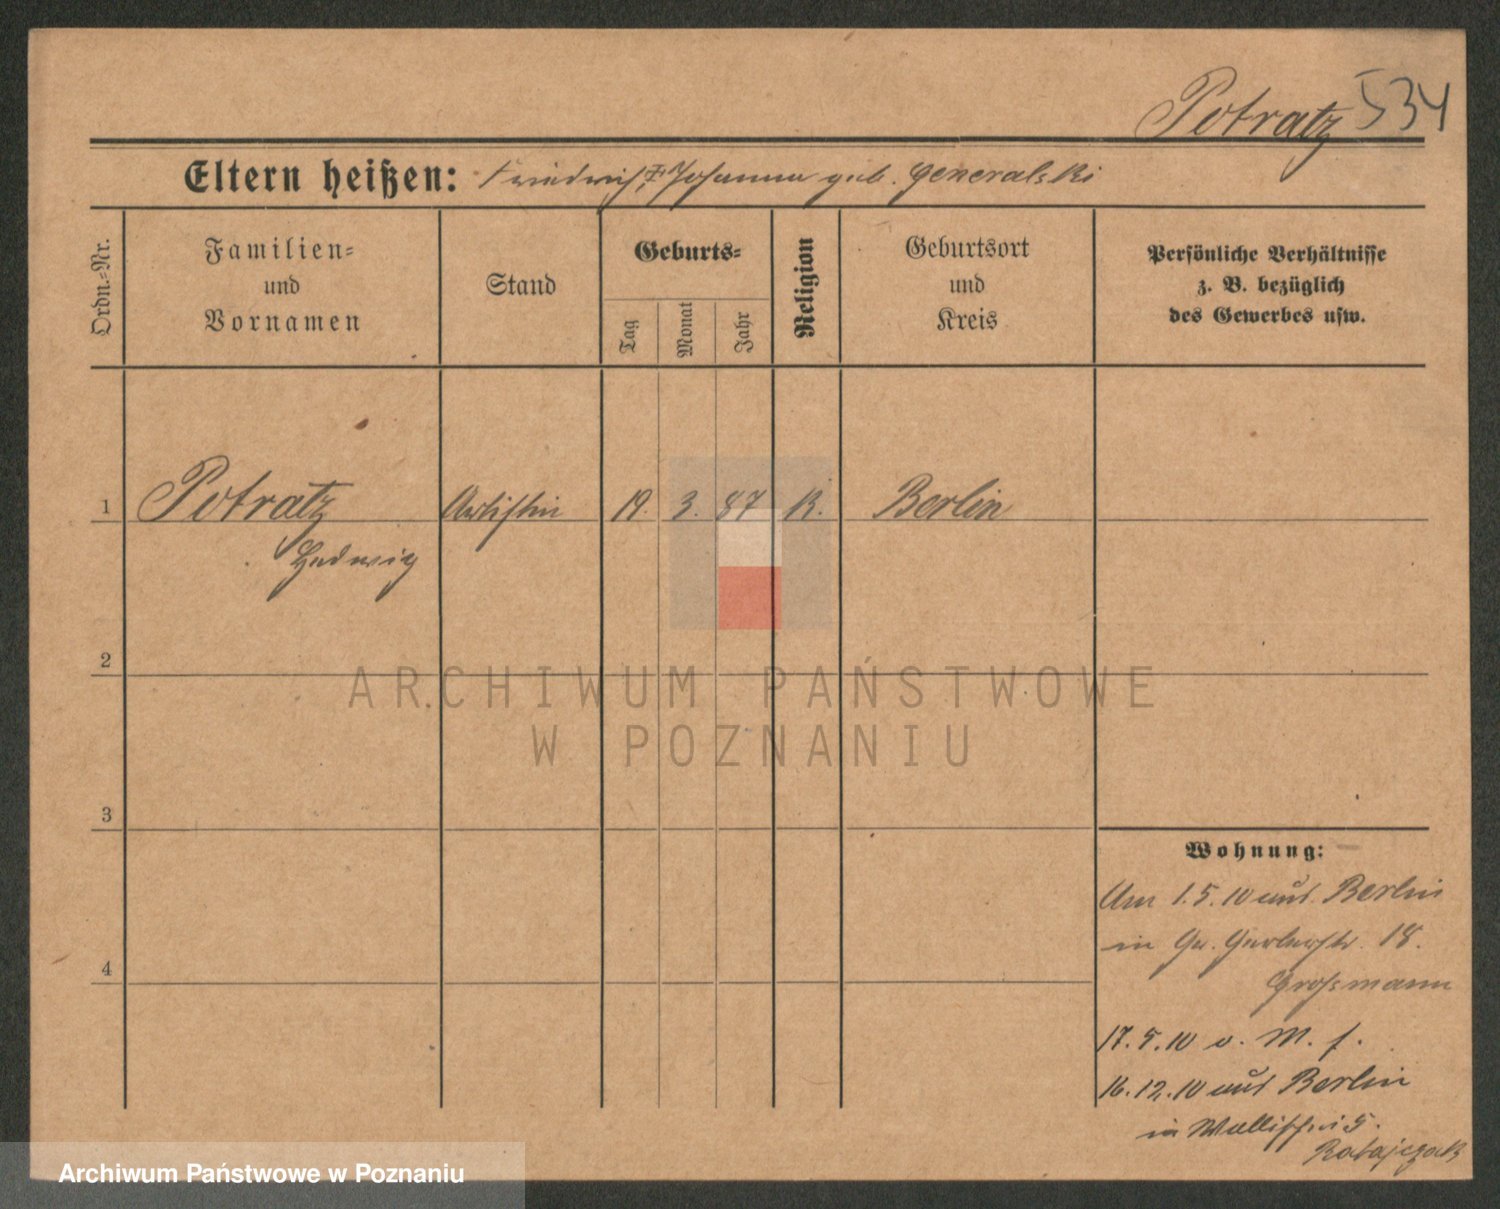 Potratz 534
Eltern heißen: Friedrich, Johanna geb. Generalski
Ordn.=Nr.
Familien=
und
Vornamen
Stand
Geburts=
Tag
Monat
Jahr
Religion
Geburtsort
und
Kreis
Persönliche Verhältnisse
z. B. bezüglich
des Gewerbes usw.
1 Potratz Artistin 19. 3. 87 K. Berlin
Hedwig
2
3
4
Wohnung:
Am 1.5.10 aus Berlin
in Gr. Gerberstr. 18.
Großmann
17.5.10 v. M. f.
16.12.10 aus Berlin
in Wallischei 5.
Ratajczak
ARCHIWUM PAŃSTWOWE
W POZNANIU
Archiwum Państwowe w Poznaniu